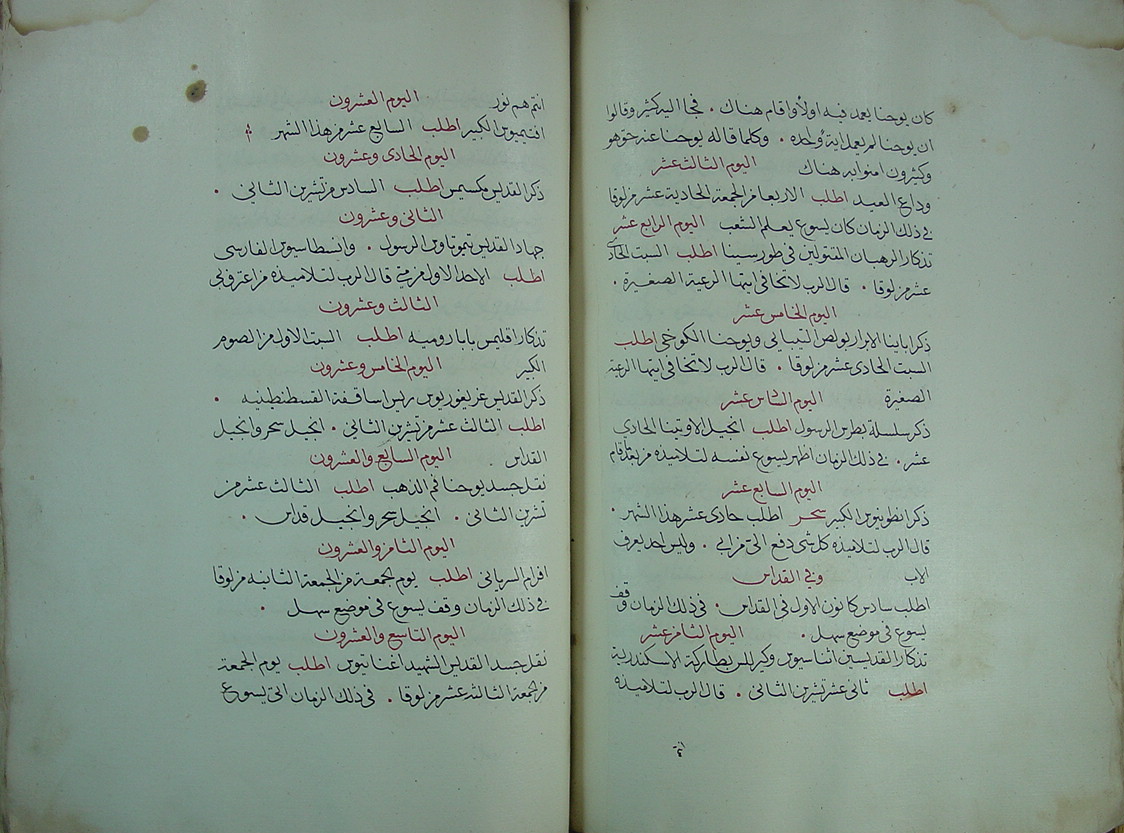 كان يوحنا يعمد فيه اولاً واقام هناك . فجا اليه كثير وقالوا
ان يوحنا لم يعمل اية واحده . وكلما قاله يوحنا عنه حق هو
وكثيرون امنوا به هناك اليوم الثالث عشر
وداع العيد اطلب الاربعا من الجمعة الحادية عشر من لوقا
في ذلك الزمان كان يسوع يعلم الشعب اليوم الرابع عشر
تذكار الرهبان المقتولين في طور سينا اطلب السبت الحادي
عشر من لوقا . قال الرب لا تخافي ايتها الرعية الصغيرة .
اليوم الخامس عشر
ذكر اباينا الابرار بولص التيباي ويوحنا الكوخي اطلب
السبت الحادي عشر من لوقا . قال الرب لا تخافي ايتها الرعية
الصغيرة اليوم السادس عشر
ذكر سلسلة بطرس الرسول اطلب انجيل الاوتينا الحادي
عشر . في ذلك الزمان اظهر يسوع نفسه لتلاميذه من بعد ما قام
اليوم السابع عشر
ذكر انطونيوس الكبير سحر اطلب حادي عشر هذا الشهر .
قال الرب لتلاميذه كل شي دفع اليّ من ابي . وليس احد يعرف
الاب وفي القداس
اطلب سادس كانون الاول في القداس . في ذلك الزمان وقف
يسوع في موضع سهل . اليوم الثامن عشر
تذكار القديسين اثناسيوس وكيرللس بطاركة الاسكندرية
اطلب ثاني عشر تشرين الثاني . قال الرب لتلاميذه
انتم هم نور اليوم العشرون
افتيميوس الكبير اطلب السابع عشر من هذا الشهر
اليوم الحادي وعشرون
ذكر القديس مكسيمس اطلب السادس من تشرين الثاني .
الثاني وعشرون
جهاد القديس تيموتاوس الرسول . وانسطاسيوس الفارسي
اطلب الاحد الاول من متى قال الرب لتلاميذه من اعترف بي
الثالث وعشرون
تذكار اقليمس بابا روميه اطلب السبت الاول من الصوم
الكبير اليوم الخامس وعشرون
ذكر القديس غريغوريوس ريس اساقفة القسطنطينيه .
اطلب الثالث عشر من تشرين الثاني . انجيل سحر وانجيل
القداس . اليوم السابع والعشرون
نقل جسد يوحنا فم الذهب اطلب الثالث عشر من
تشرين الثاني . انجيل سحر وانجيل قداس .
اليوم الثامن والعشرون
افرام السرياني اطلب يوم الجمعة من الجمعة الثانيه من لوقا
في ذلك الزمان وقف يسوع في موضع سهل .
اليوم التاسع والعشرون
نقل جسد القديس الشهيد اغناتيوس اطلب يوم الجمعة
من الجمعة الثالثه عشر من لوقا . في ذلك الزمان اتى يسوع